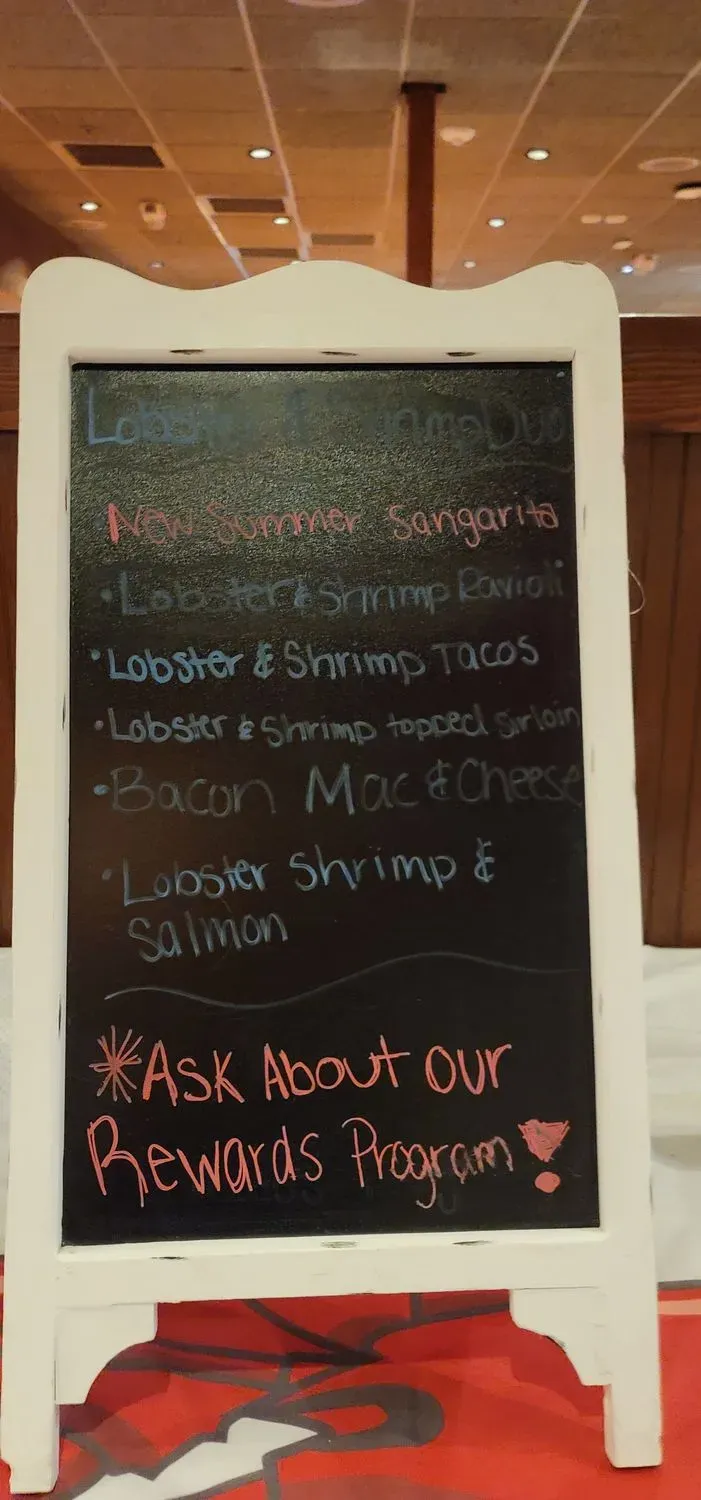 Lobster & Shrimp Duo
New Summer Sangarita
• Lobster & Shrimp Ravioli
• Lobster & Shrimp Tacos
• Lobster & Shrimp topped sirloin
• Bacon Mac & Cheese
• Lobster Shrimp &
Salmon
*Ask About our
Rewards Program!